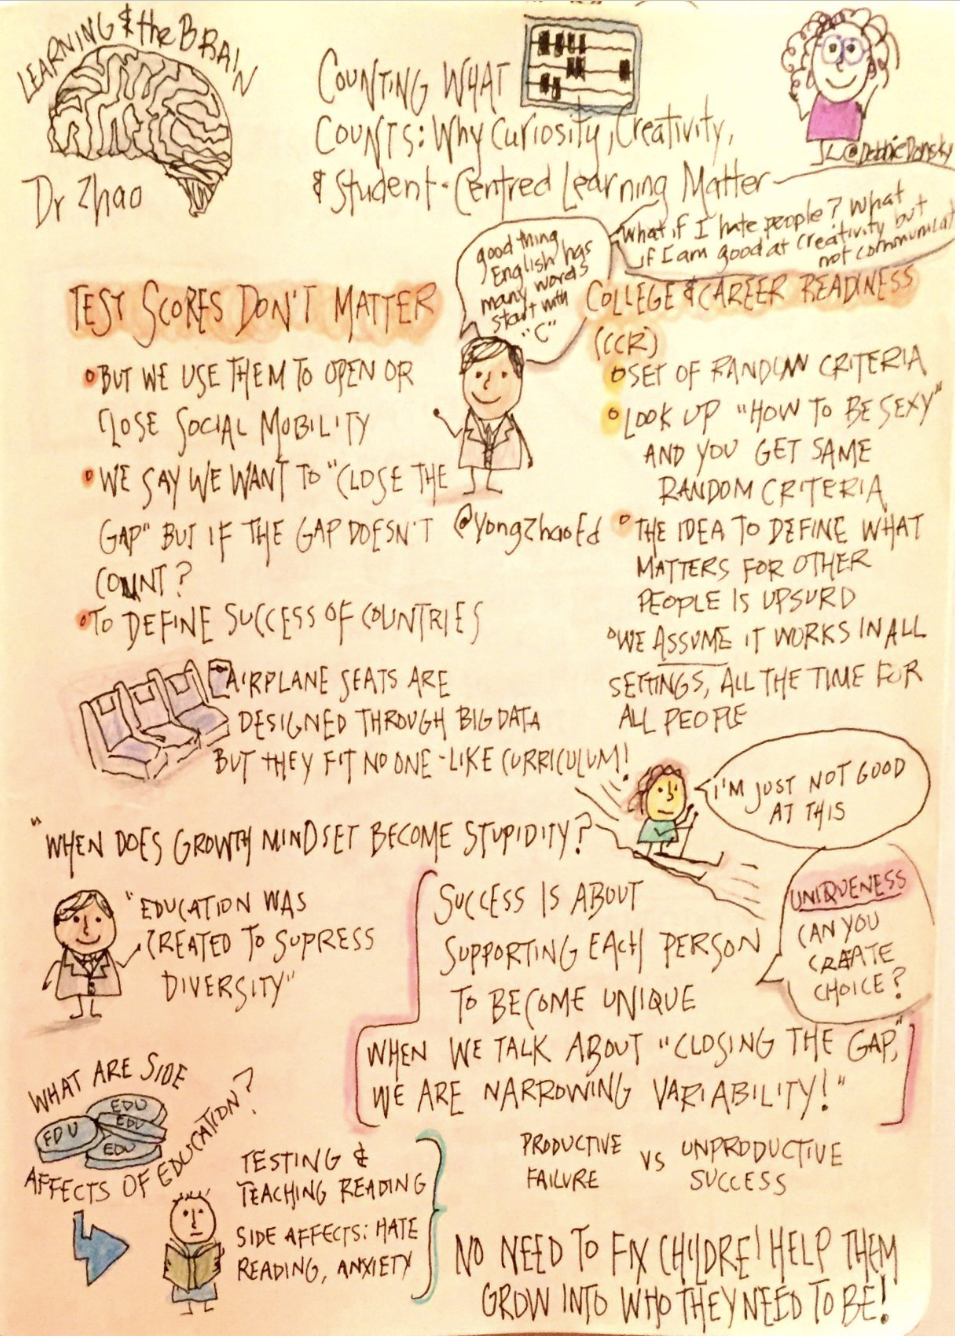 LEARNING & the BRAIN
Dr Zhao
COUNTING WHAT
COUNTS: Why Curiosity, Creativity,
& Student-Centred Learning Matter
@DebbieDonsky
good thing
English has
many words
start with
"C"
What if I hate people? What
if I am good at creativity but
not communicat
TEST SCORES DON'T MATTER
BUT WE USE THEM TO OPEN OR
CLOSE SOCIAL MOBILITY
WE SAY WE WANT TO "CLOSE THE
GAP" BUT IF THE GAP DOESN'T
COUNT?
TO DEFINE SUCCESS OF COUNTRIES
@YongZhaoEd
COLLEGE & CAREER READINESS
(CCR)
SET OF RANDUM CRITERIA
LOOK UP "HOW TO BE SEXY"
AND YOU GET SAME
RANDOM CRITERIA
THE IDEA TO DEFINE WHAT
MATTERS FOR OTHER
PEOPLE IS UPSURD
WE ASSUME IT WORKS IN ALL
SETTINGS, ALL THE TIME FOR
ALL PEOPLE
AIRPLANE SEATS ARE
DESIGNED THROUGH BIG DATA
BUT THEY FIT NO ONE - LIKE CURRICULUM!
I'M JUST NOT GOOD
AT THIS
"WHEN DOES GROWTH MINDSET BECOME STUPIDITY?
"EDUCATION WAS
CREATED TO SUPRESS
DIVERSITY"
SUCCESS IS ABOUT
SUPPORTING EACH PERSON
TO BECOME UNIQUE
WHEN WE TALK ABOUT "CLOSING THE GAP,"
WE ARE NARROWING VARIABILITY!"
UNIQUENESS
CAN YOU
CREATE
CHOICE?
WHAT ARE SIDE
EDU
EDU
EDU
EDU
AFFECTS OF EDUCATION?
TESTING &
TEACHING READING
SIDE AFFECTS: HATE
READING, ANXIETY
PRODUCTIVE
FAILURE
VS
UNPRODUCTIVE
SUCCESS
NO NEED TO FIX CHILDRE! HELP THEM
GROW INTO WHO THEY NEED TO BE!